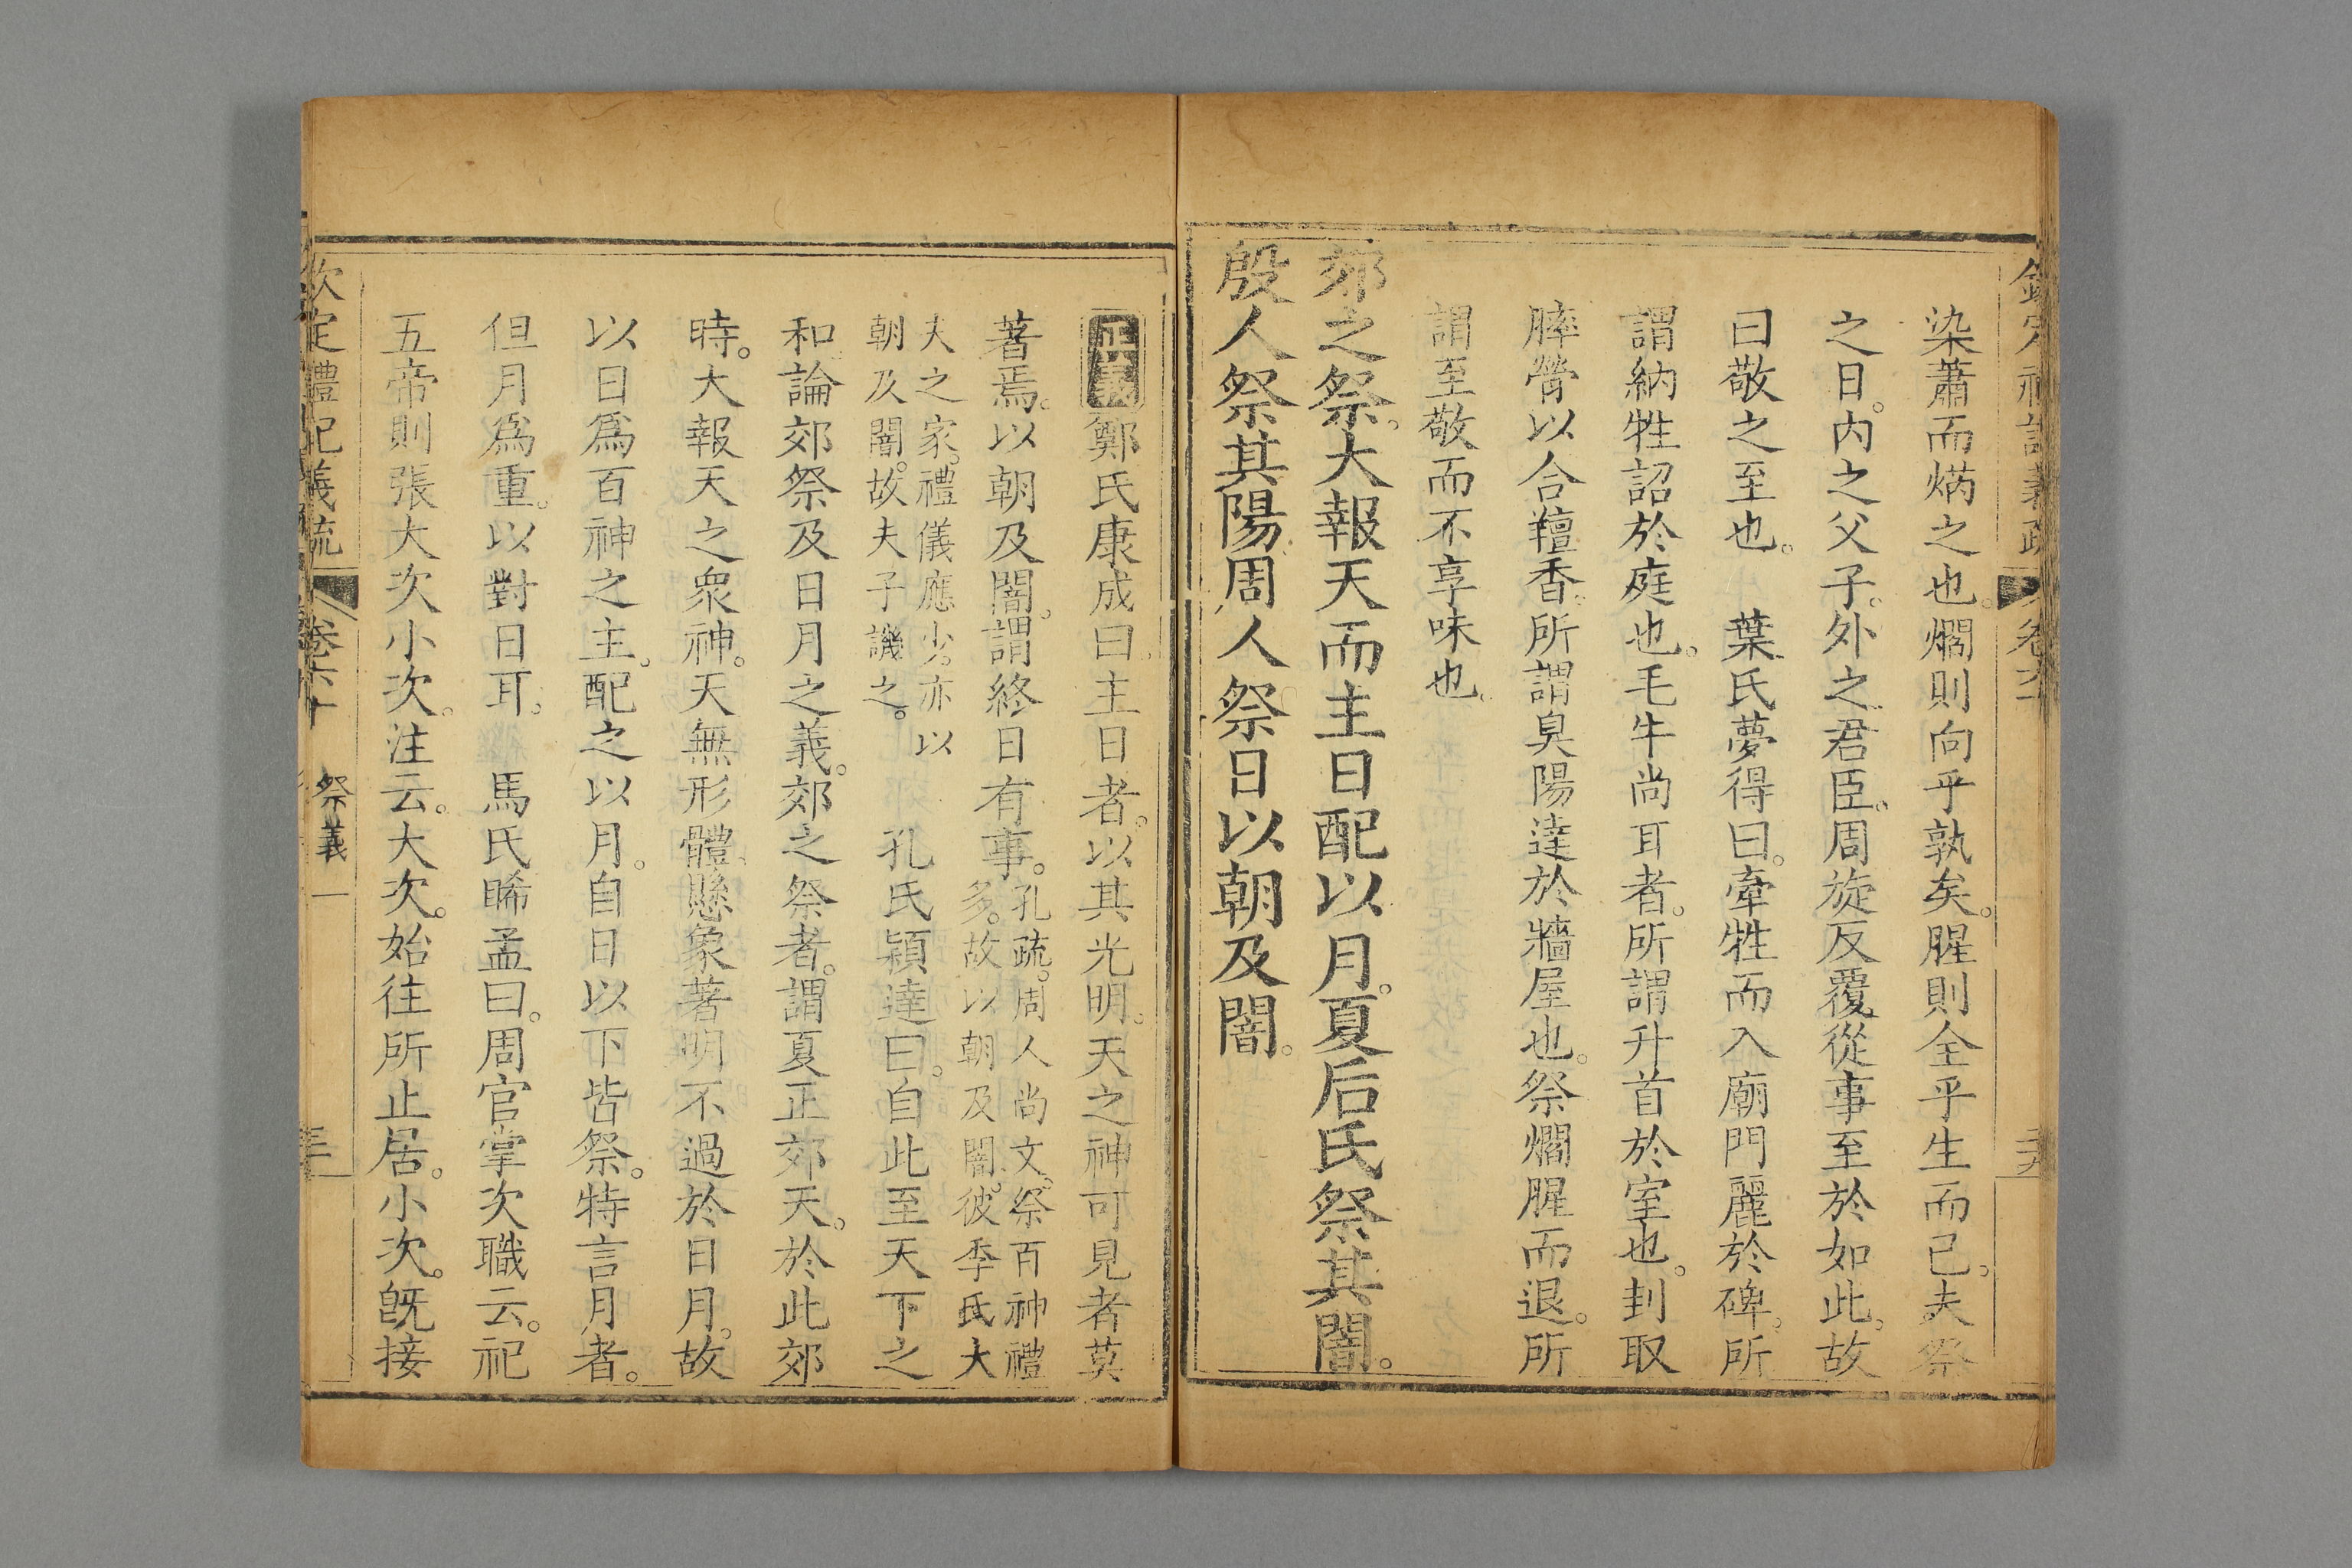 染蕭而焫之也。爓則向乎孰矣。腥則全乎生而已。夫祭
之日。内之父子。外之君臣。周旋反覆從事至於如此。故
曰敬之至也。 葉氏夢得曰。牽牲而入廟門麗於碑。所
謂納牲詔於庭也。毛牛尚耳者。所謂升首於室也。刲取
膟膋以合羶香。所謂臭陽達於牆屋也。祭爓腥而退。所
謂至敬而不享味也。
郊之祭。大報天而主日配以月。夏后氏祭其闇。
殷人祭其陽周人祭日以朝及闇。
正義鄭氏康成曰主日者。以其光明。天之神可見者莫
著焉。以朝及闇。謂終日有事。孔疏。周人尚文。祭百神禮
多。故以朝及闇。彼季氏大
夫之家。禮儀應少。亦以
朝及闇。故夫子譏之。 孔氏穎達曰。自此至天下之
和論郊祭及日月之義。郊之祭者。謂夏正郊天。於此郊
時。大報天之衆神。天無形體。懸象著明不過於日月。故
以日爲百神之主。配之以月。自日以下皆祭。特言月者。
但月爲重。以對日耳。 馬氏睎孟曰。周官掌次職云。祀
五帝則張大次小次。注云。大次。始往所止居。小次。旣接
欽定禮記義疏 卷六十 祭義一